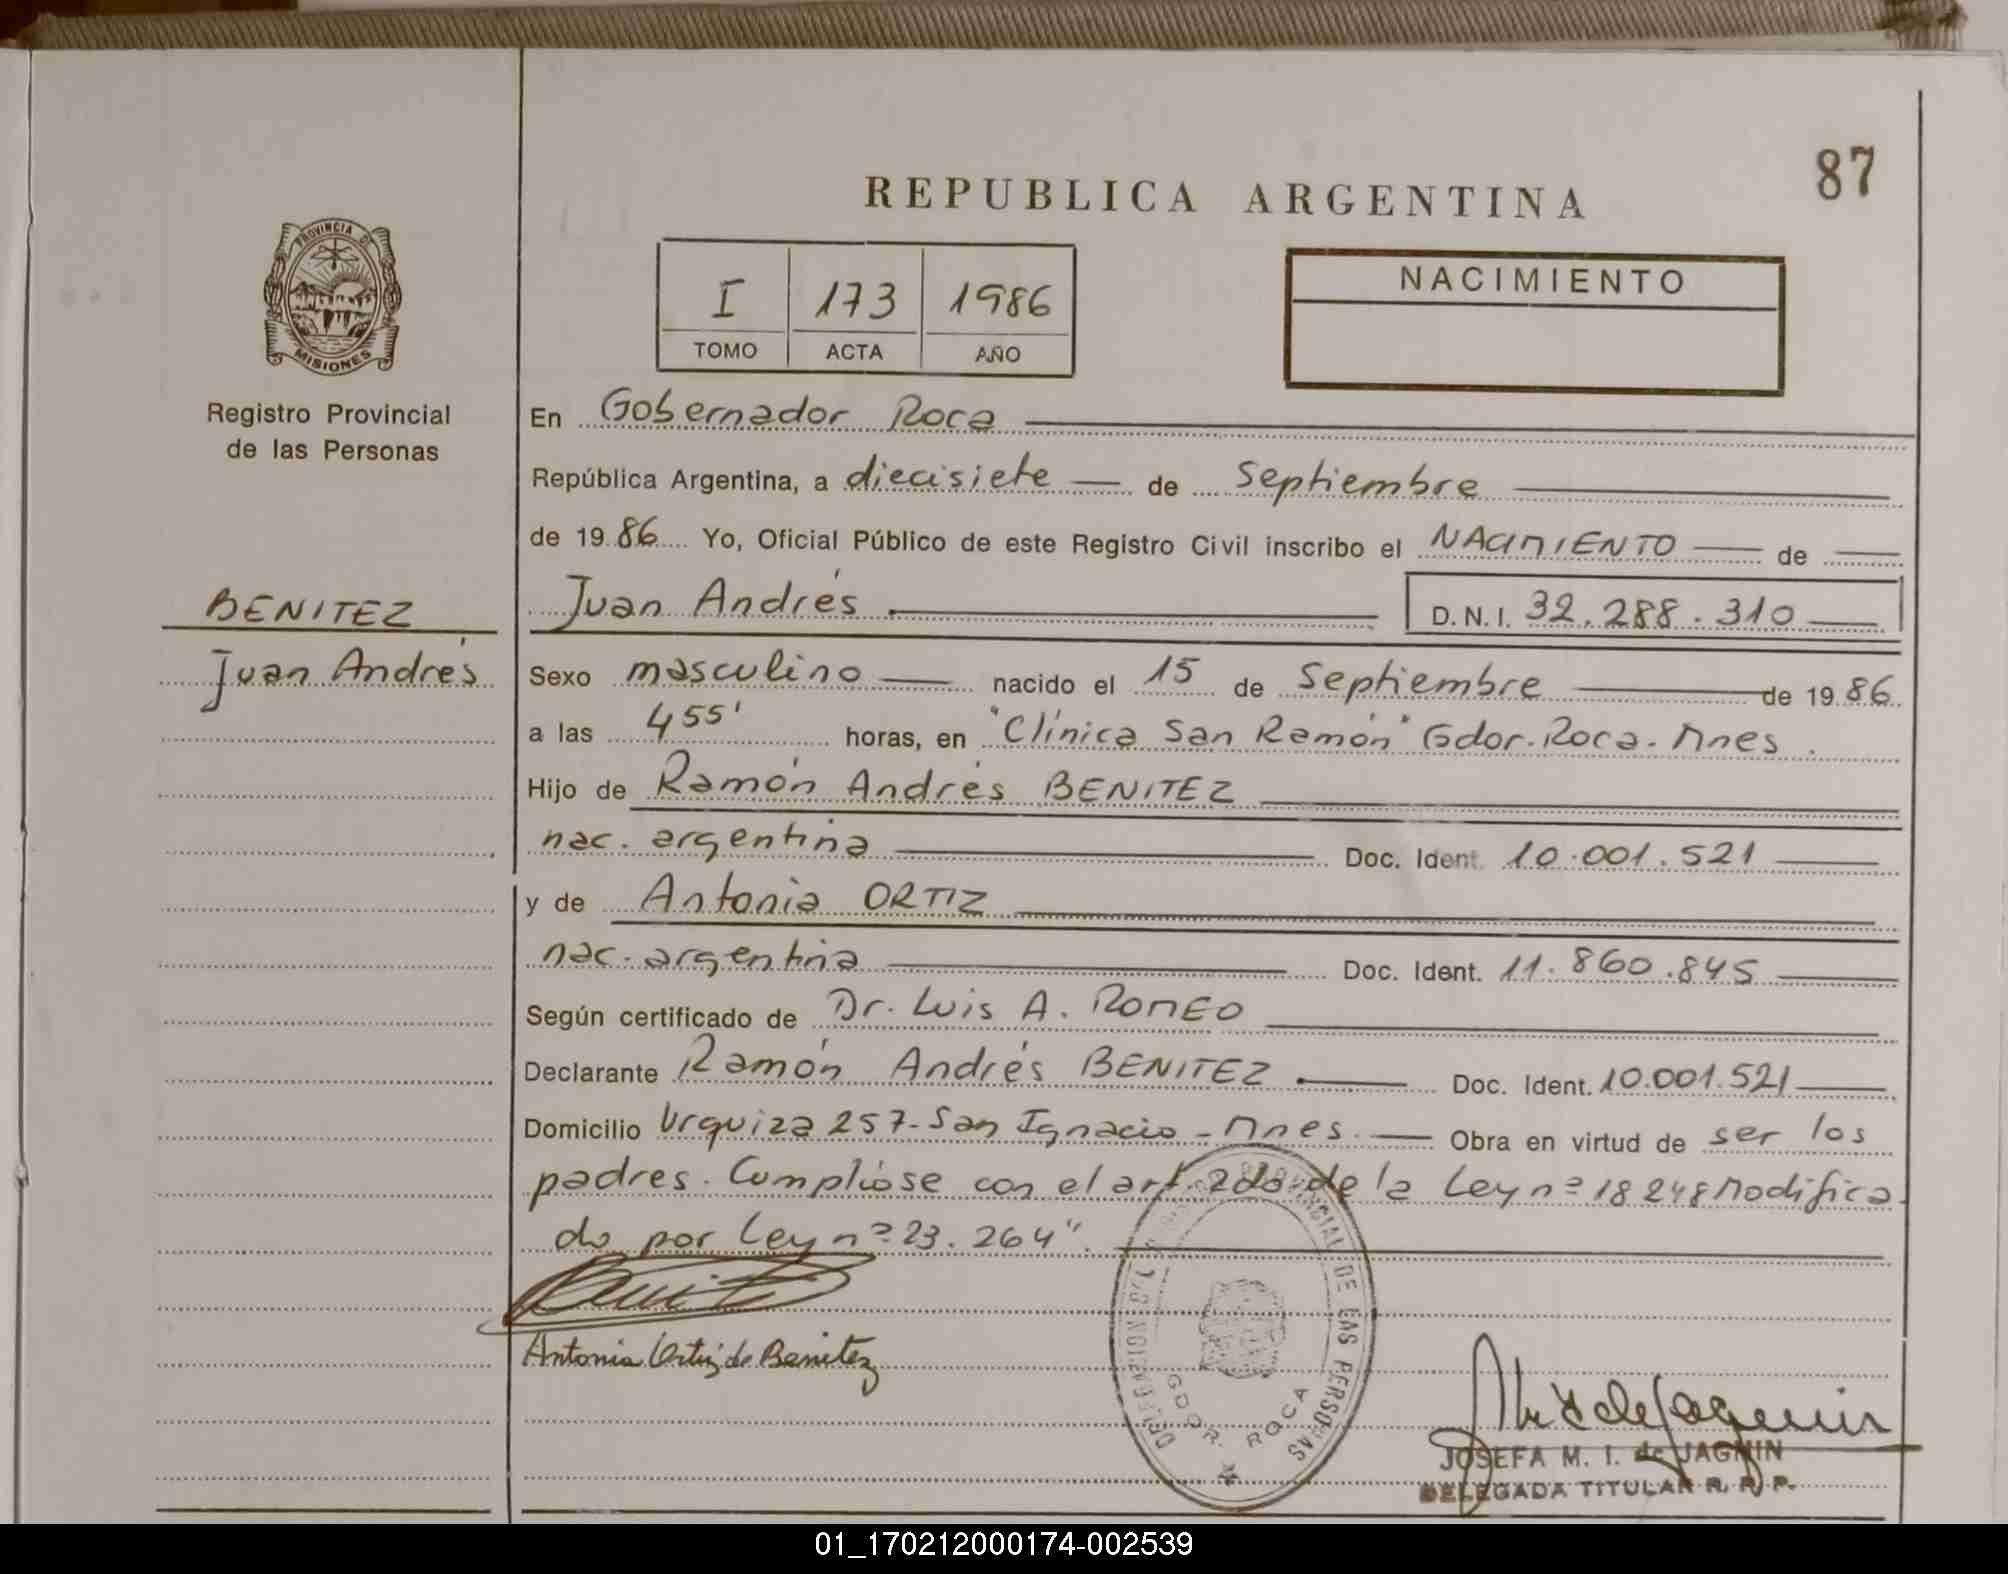 87
REPUBLICA ARGENTINA
PROVINCIA DE
MISIONES
Registro Provincial
de las Personas
I 173 1986
TOMO ACTA AÑO
NACIMIENTO
En Gobernador Roca
República Argentina, a diecisiete de Septiembre
de 1986 Yo, Oficial Público de este Registro Civil inscribo el NACIMIENTO de
BENITEZ
Juan Andrés
Juan Andrés D.N.I. 32.288.310
Sexo masculino nacido el 15 de Septiembre de 1986.
a las 455' horas, en "Clínica San Ramón" Gdor. Roca. Mnes.
Hijo de Ramón Andrés BENITEZ
nac. argentina Doc. Ident. 10.001.521
y de Antonia ORTIZ
nac. argentina Doc. Ident. 11.860.845
Según certificado de Dr. Luis A. ROMEO
Declarante Ramón Andrés BENITEZ Doc. Ident. 10.001.521
Domicilio Urquiza 257- San Ignacio - Mnes. Obra en virtud de ser los
padres. Cumplióse con el art. 2do de la Ley nº 18248 Modifica
do por Ley nº 23.264".
Benitez
Antonia Ortiz de Benitez
PROVINCIAL DE LAS PERSONAS
GDOR. ROCA
JOSEFA M. I. de JAGMIN
DELEGADA TITULAR R. P. P.
01_170212000174-002539